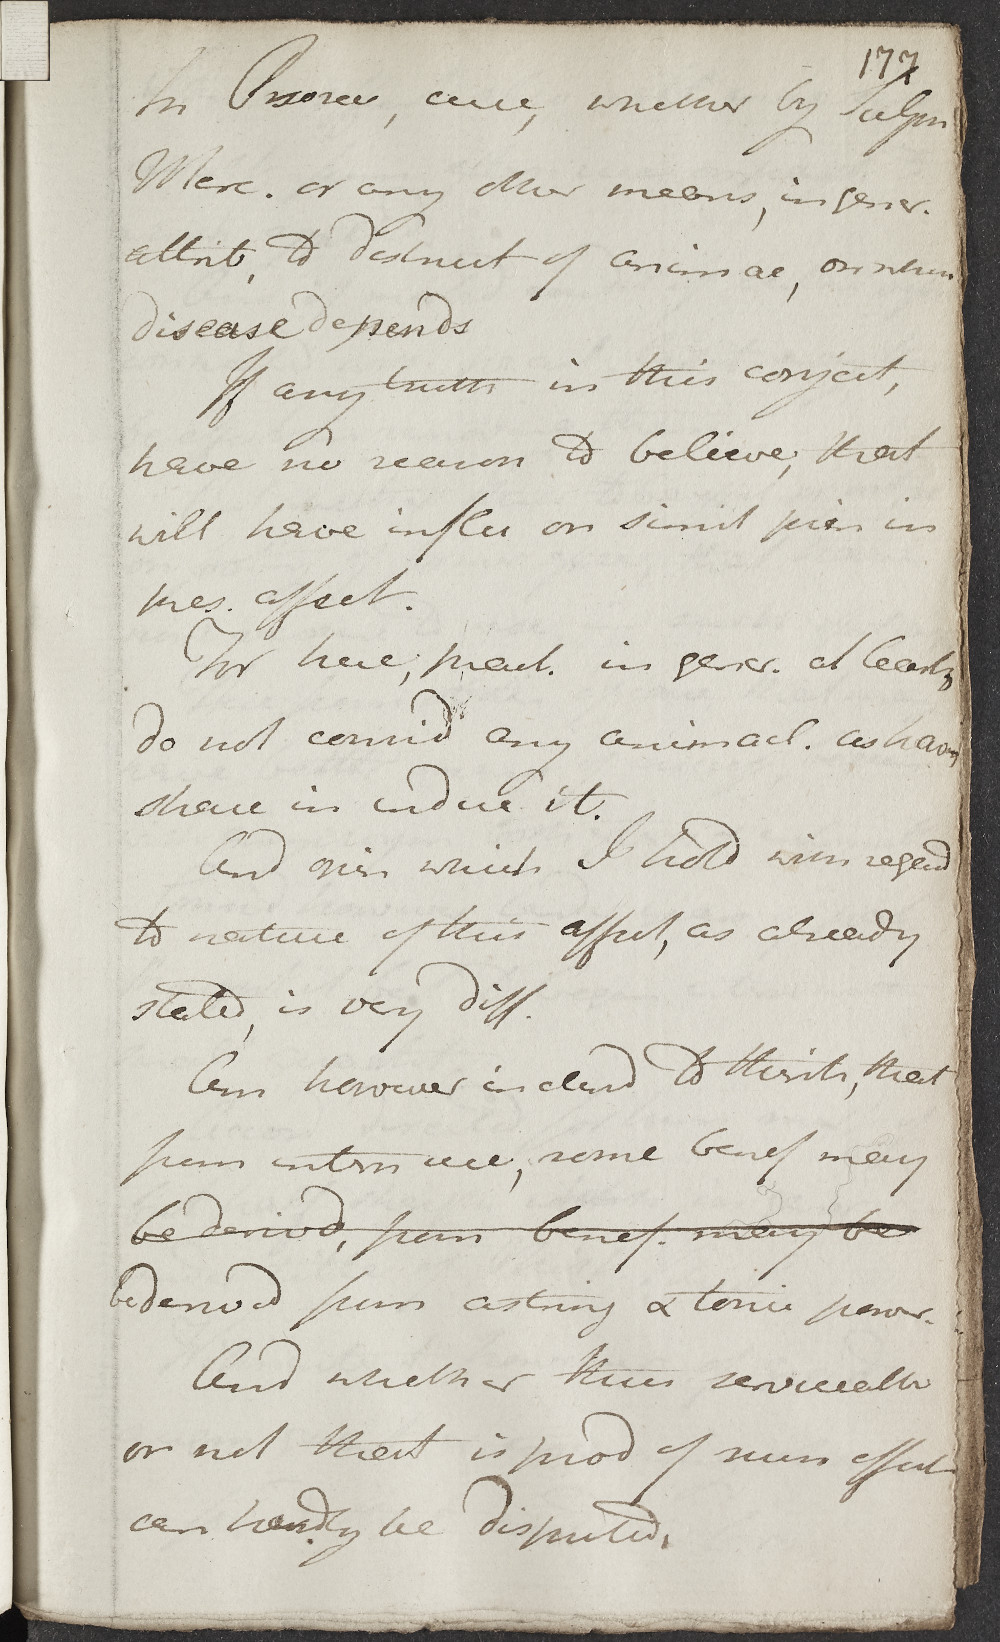 177
In Psorea, cure, whether by Sulph
Merc. or any other means, in gener.
attrib, to destruct of animac, on whi
disease depends
If any truth in this conject,
have no reason to believe, that
will have influ on simil prin in
pres. affect.
For here, pract. in gener. at least,
do not consid any animacl. as hav
share in induc it.
And opin which I hold with regard
to nature of this affect, as already
stated, is very diff.
Am however inclind to think, that
from intern use, some benef may
be derivd, from benef. may be
be derived from astring & tonic power.
And whether thus serviceable
or not that is prod of such effect
can hardly be disputed.